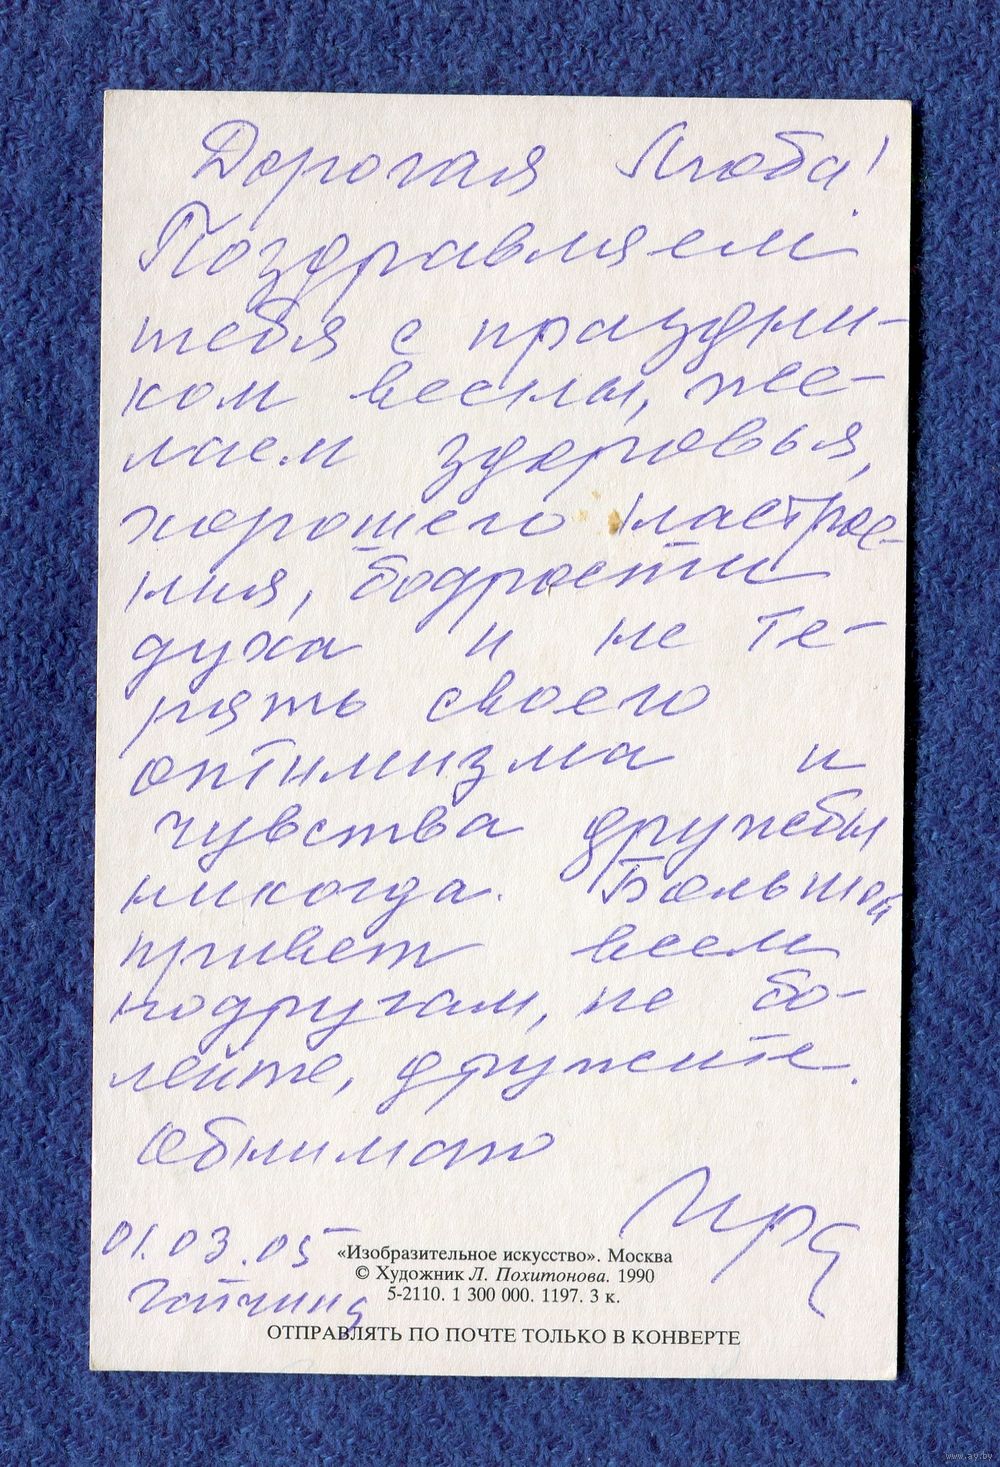 Дорогая Люба!
Поздравляем
тебя с праздни-
ком весны, же-
лаем здоровья,
хорошего настрое-
ния, бодрости
духа и не те-
рять своего
оптимизма и
чувства дружбы
никогда. Большой
привет всем
подругам, не бо-
лейте, дружите.
Обнимаю
Ира
01.03.05
«Изобразительное искусство». Москва
© Художник Л. Похитонова. 1990
5-2110. 1 300 000. 1197. 3 к.
ОТПРАВЛЯТЬ ПО ПОЧТЕ ТОЛЬКО В КОНВЕРТЕ
www.ay.by